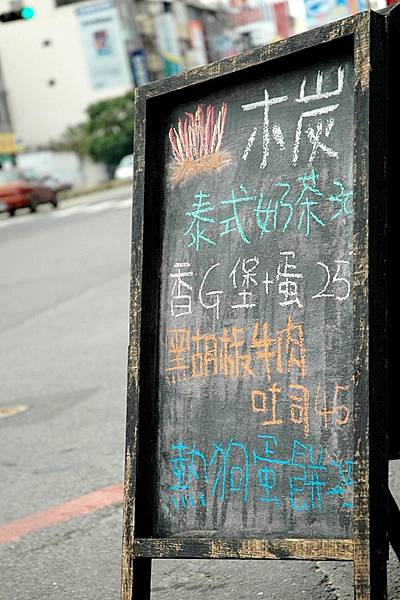 木炭
泰式奶茶
香G堡+蛋 25
黑胡椒牛肉
吐司 45
熱狗蛋餅